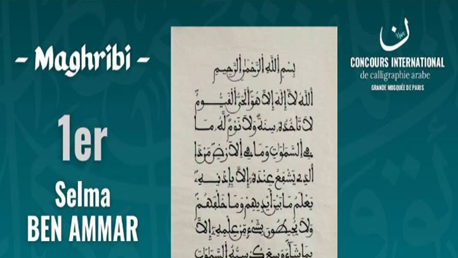 - Maghribi -
1er
Selma
BEN AMMAR
بسم الله الرحمن الرحيم
الله لا إله إلا هو الحي القيوم
لا تأخذه سنة ولا نوم له ما
في السموات وما في الأرض من ذا
الذي يشفع عنده إلا بإذنه
يعلم ما بين أيديهم وما خلفهم
ولا يحيطون بشيء من علمه إلا
بما شاء وسع كرسيه السموات
CONCOURS INTERNATIONAL
de calligraphie arabe
GRANDE MOSQUÉE DE PARIS